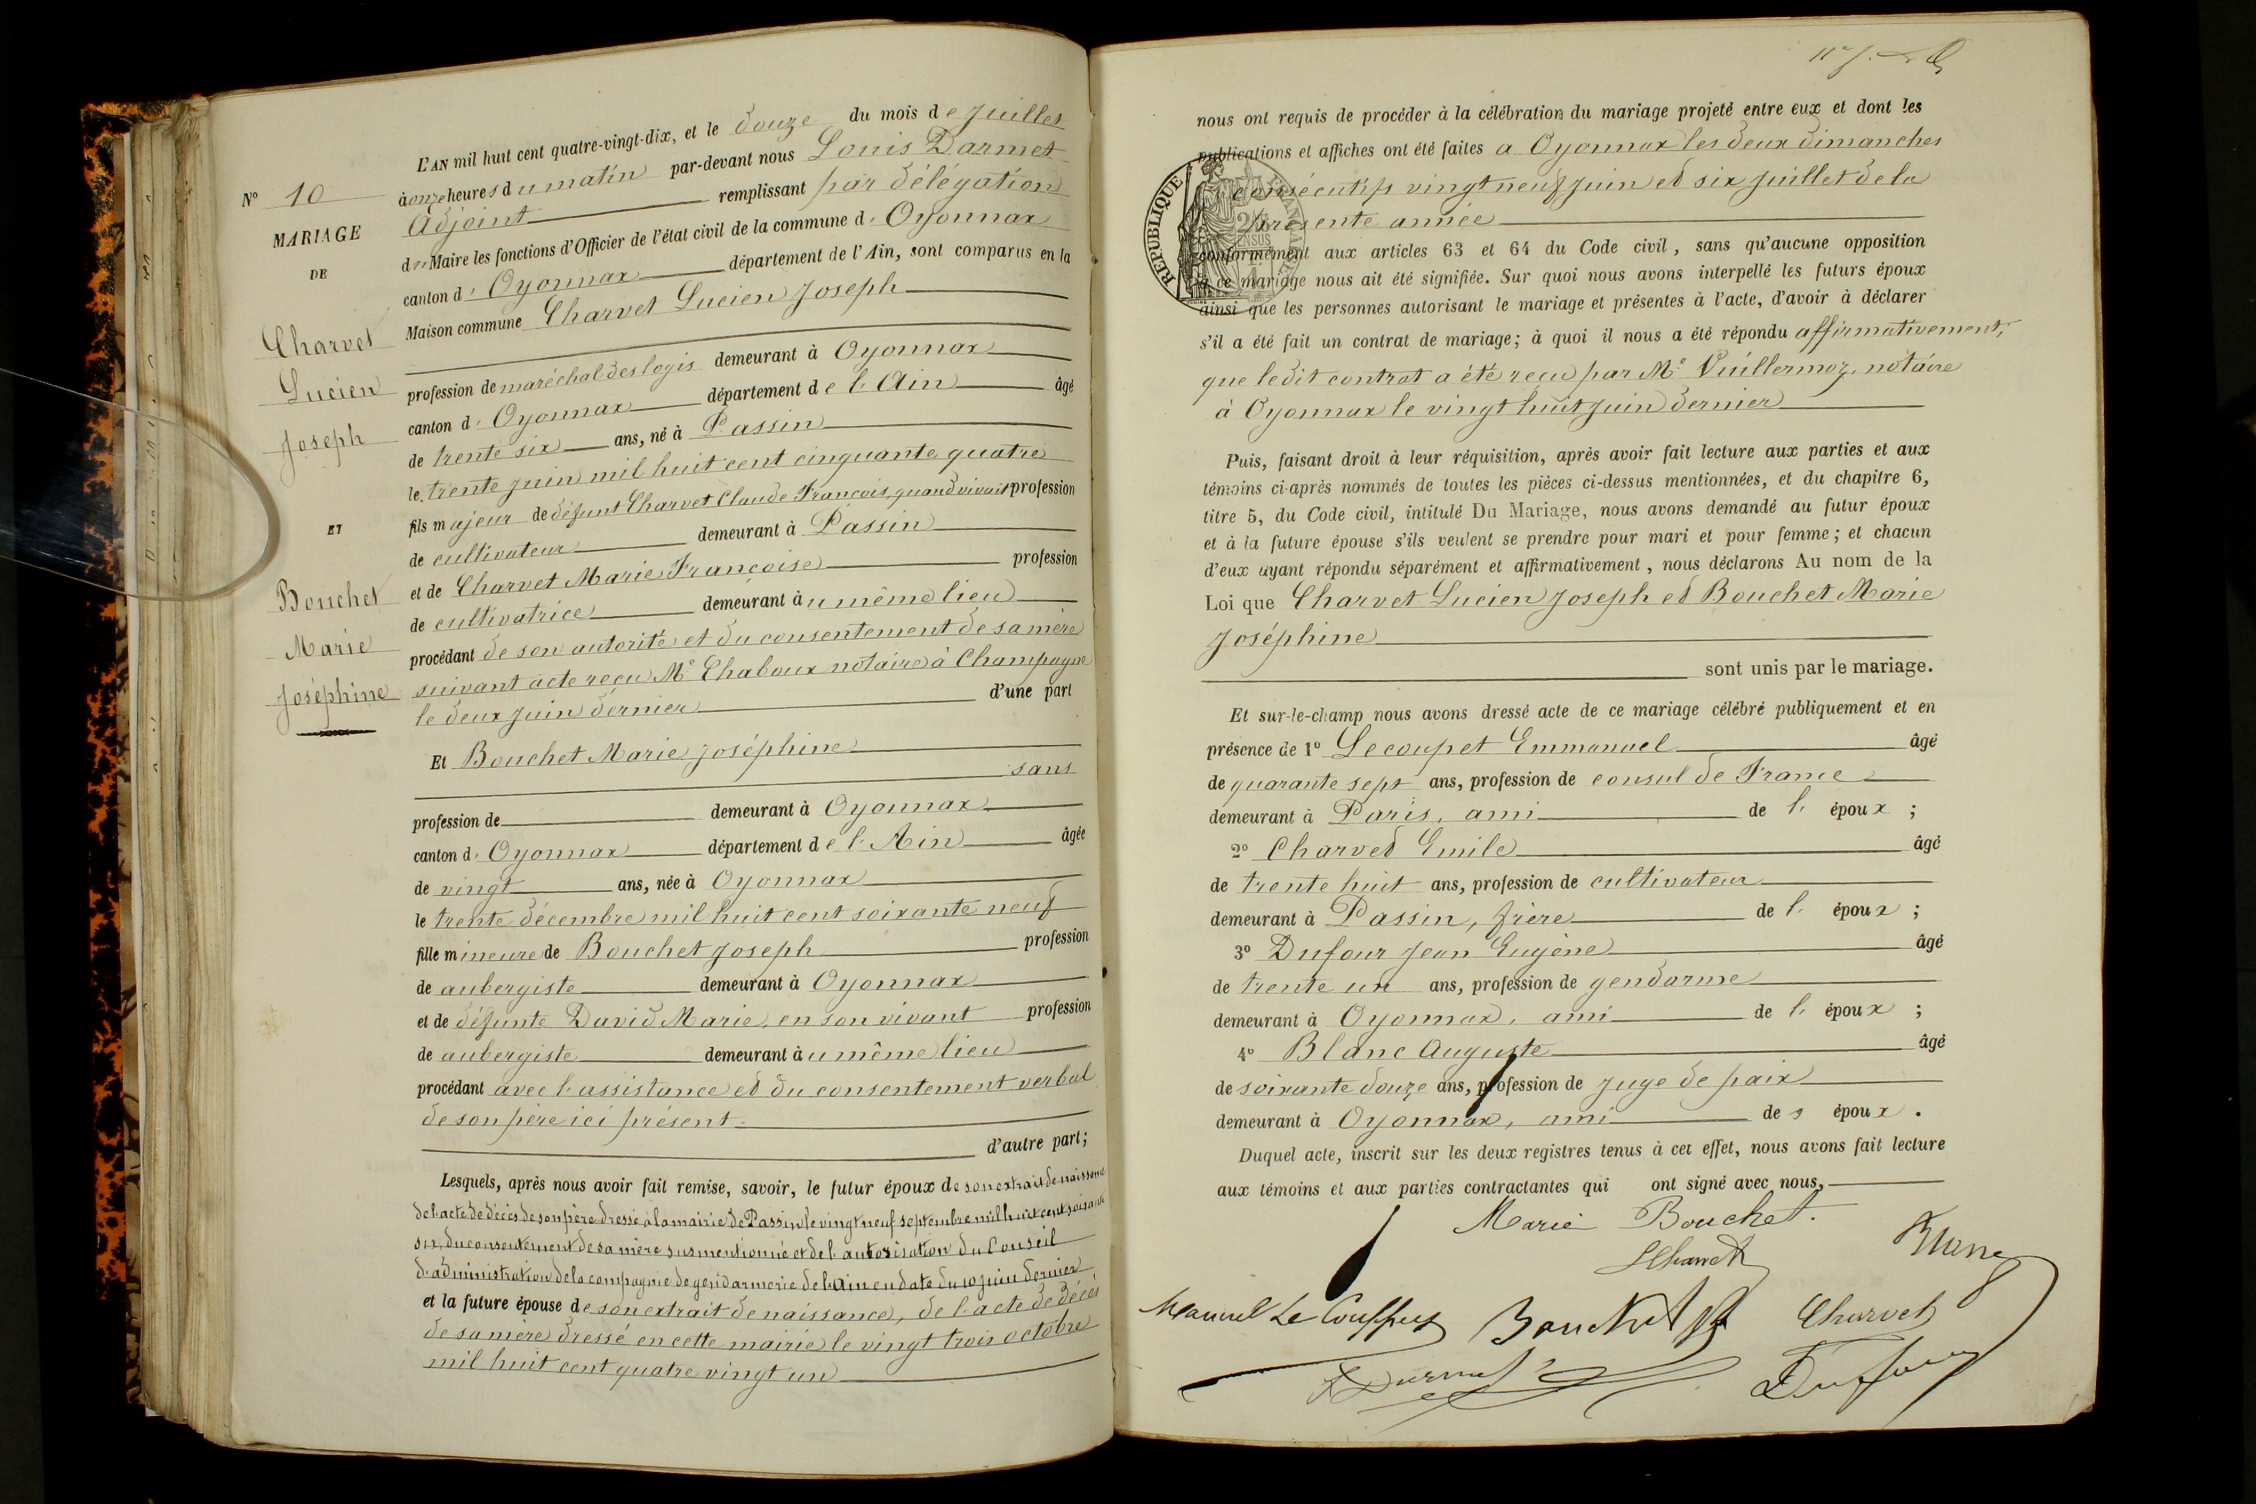 N° 10
MARIAGE
DE
Charvet
Lucien
Joseph
ET
Bouchet
Marie
Joséphine
L'AN mil huit cent quatre-vingt-dix, et le douze du mois de juillet
à onze heures du matin par-devant nous Louis Darmet
Adjoint remplissant par délégation
du Maire les fonctions d'Officier de l'état civil de la commune d'Oyonnax
canton d'Oyonnax département de l'Ain, sont comparus en la
Maison commune Charvet Lucien Joseph
profession de maréchal des logis demeurant à Oyonnax
canton d'Oyonnax département de l'Ain âgé
de trente six ans, né à Passin
le trente juin mil huit cent cinquante quatre
fils majeur de défunt Charvet Claude François, quand vivait profession
de cultivateur demeurant à Passin
et de Charvet Marie Françoise profession
de cultivatrice demeurant au même lieu
procédant de son autorité et du consentement de sa mère
suivant acte reçu Me Chaboux notaire à Champagne
le deux juin dernier d'une part
Et Bouchet Marie Joséphine
sans
profession de demeurant à Oyonnax
canton d'Oyonnax département de l'Ain âgée
de vingt ans, née à Oyonnax
le trente décembre mil huit cent soixante neuf
fille mineure de Bouchet Joseph profession
de aubergiste demeurant à Oyonnax
et de défunte David Marie, en son vivant profession
de aubergiste demeurant au même lieu
procédant avec l'assistance et du consentement verbal
de son père ici présent
d'autre part;
Lesquels, après nous avoir fait remise, savoir, le futur époux de son extrait de naissance
de l'acte de décès de son père dressé à la mairie de Passin le vingt neuf septembre mil huit cent soixante
six, du consentement de sa mère susmentionné et de l'autorisation du Conseil
d'administration de la compagnie de gendarmerie de l'Ain en date du 10 juin dernier
et la future épouse de son extrait de naissance, de l'acte de décès
de sa mère dressé en cette mairie le vingt trois octobre
mil huit cent quatre vingt un
nous ont requis de procéder à la célébration du mariage projeté entre eux et dont les
publications et affiches ont été faites a Oyonnax les deux dimanches
consécutifs vingt neuf juin et six juillet de la
présente année
REPUBLIQUE FRANÇAISE
conformément aux articles 63 et 64 du Code civil, sans qu'aucune opposition
à ce mariage nous ait été signifiée. Sur quoi nous avons interpellé les futurs époux
ainsi que les personnes autorisant le mariage et présentes à l'acte, d'avoir à déclarer
s'il a été fait un contrat de mariage; à quoi il nous a été répondu affirmativement,
que ledit contrat a été reçu par Me Vuillermoz, notaire
à Oyonnax le vingt huit juin dernier
Puis, faisant droit à leur réquisition, après avoir fait lecture aux parties et aux
témoins ci-après nommés de toutes les pièces ci-dessus mentionnées, et du chapitre 6,
titre 5, du Code civil, intitulé Du Mariage, nous avons demandé au futur époux
et à la future épouse s'ils veulent se prendre pour mari et pour femme; et chacun
d'eux ayant répondu séparément et affirmativement, nous déclarons Au nom de la
Loi que Charvet Lucien Joseph et Bouchet Marie
Joséphine
sont unis par le mariage.
Et sur-le-champ nous avons dressé acte de ce mariage célébré publiquement et en
présence de 1° Lecoupet Emmanuel âgé
de quarante sept ans, profession de consul de France
demeurant à Paris, ami de l'époux ;
2° Charvet Emile âgé
de trente huit ans, profession de cultivateur
demeurant à Passin, frère de l'époux ;
3° Dufour Jean Eugène âgé
de trente un ans, profession de gendarme
demeurant à Oyonnax, ami de l'époux ;
4° Blanc Auguste âgé
de soixante douze ans, profession de juge de paix
demeurant à Oyonnax, ami des époux.
Duquel acte, inscrit sur les deux registres tenus à cet effet, nous avons fait lecture
aux témoins et aux parties contractantes qui ont signé avec nous,
Marie Bouchet.
LCharvet
Blanc
Bouchet
Charvet
Darmet
Dufour